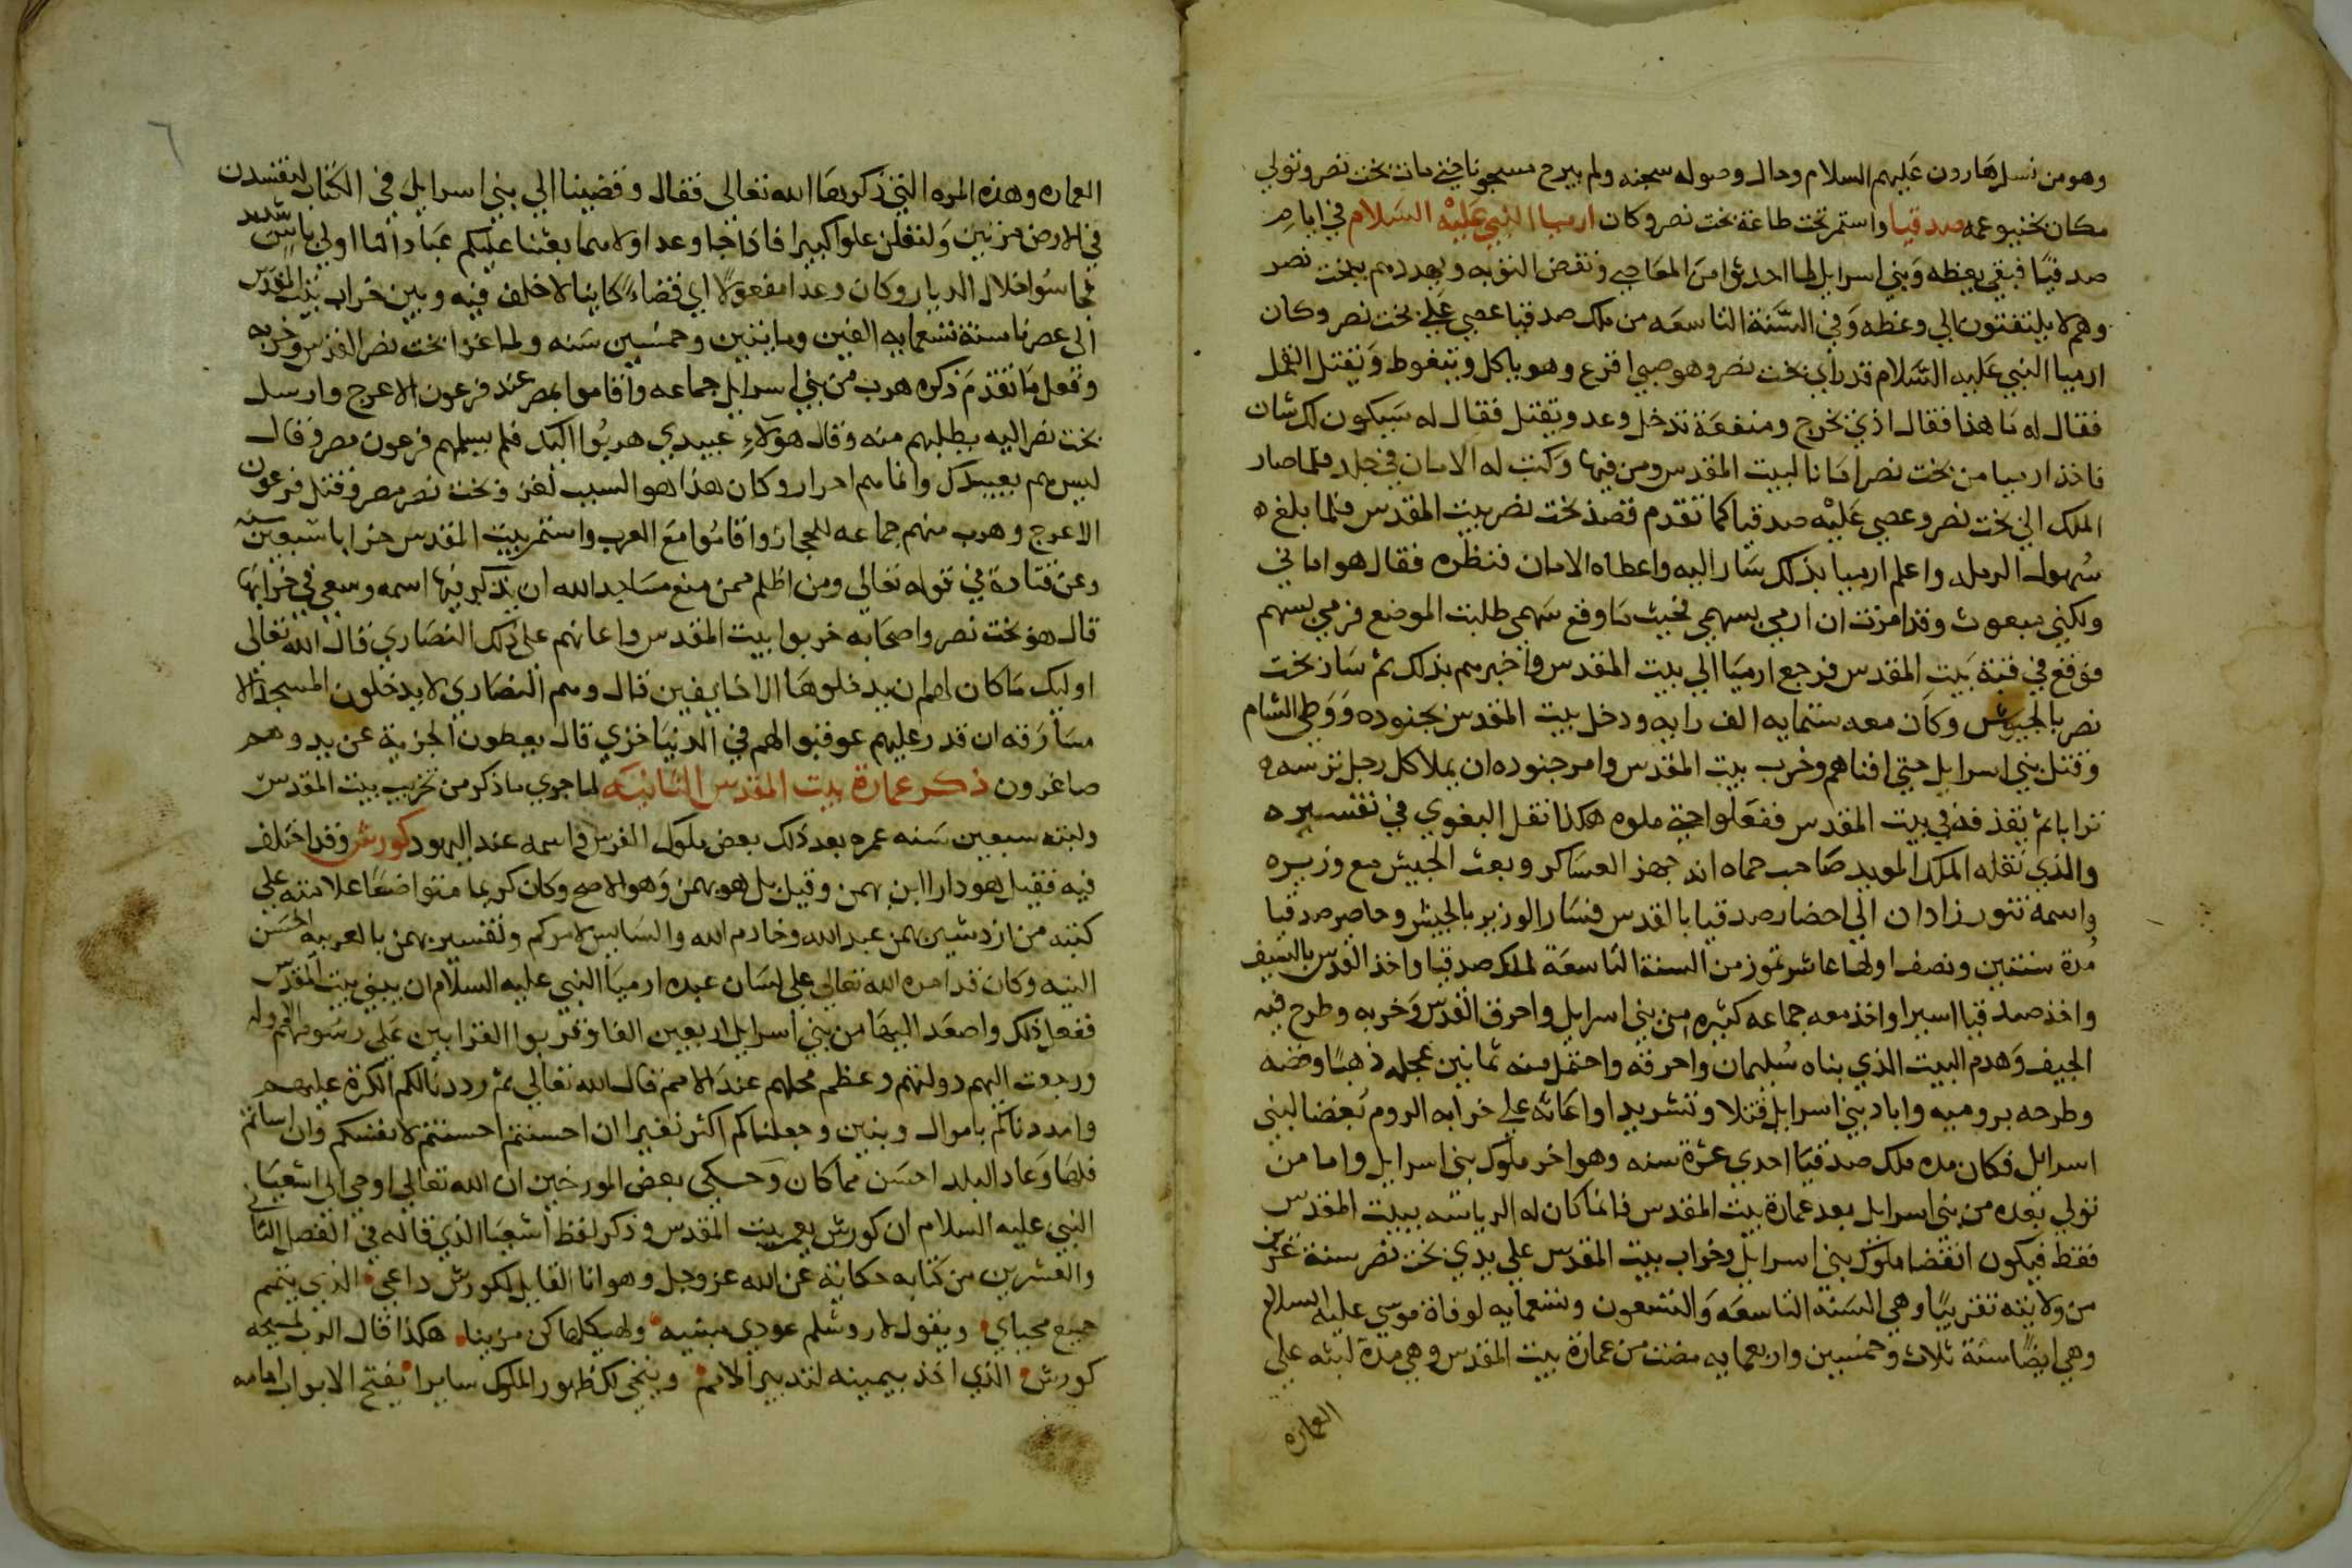 وهو من نسل هارون عليهم السلام وحال وصوله سجنه ولم يبرح مسجونا حتي مات بخت نصر وتولي
مكان يخنيو عمه صدقيا واستمر تحت طاعة بخت نصر وكان ارميا النبي عليه السلام في ايام
صدقيا فبقي يعظه وبني اسرايل لما احدثوا من المعاصي ونقض التوبه ويهددهم ببخت نصر
وهم لا يلتفتون الي وعظه وفي السنة التاسعه من ملك صدقيا عصي علي بخت نصر وكان
ارميا النبي عليه السلام قد راي بخت نصر وهو صبي اقرع وهو ياكل ويتغوط ويقتل القمل
فقال له ما هذا فقال اذي يخرج ومنفعة تدخل وعدو يقتل فقال له سيكون لك شان
فاخذ ارميا من بخت نصر امانا لبيت المقدس ومن فيها وكتب له الامان في جلد فلما صار
الملك الي بخت نصر وعصي عليه صدقيا كما تقدم قصد بخت نصر بيت المقدس فلما بلغ
سهول الرمله واعلم ارميا بذلك سار اليه واعطاه الامان فنظره فقال هو اماني
ولكني مبعوث وقد امرت ان ارمي بسهمي فحيث ما وقع سهمي طلبت الموضع فرمي بسهم
فوقع في قبة بيت المقدس فرجع ارميا الي بيت المقدس واخبرهم بذلك ثم سار بخت
نصر بالجيوش وكان معه ستمايه الف رايه ودخل بيت المقدس بجنوده ووطي الشام
وقتل بني اسرايل حتي افناهم وخرب بيت المقدس وامر جنوده ان يملا كل رجل ترسه
ترابا ثم يقذفه في بيت المقدس ففعلوا حتي ملوه هكذا نقل البغوي في تفسيره
والذي نقله الملك المويد صاحب حماه انه جهز العساكر وبعث الجيش مع وزيره
واسمه نبورزادان الي احضار صدقيا بالقدس فسار الوزير بالجيش وحاصر صدقيا
مدة سنتين ونصف اولها عاشر تموز من السنة التاسعة لملك صدقيا واخذ القدس بالسيف
واخذ صدقيا اسيرا واخذ معه جماعه كثيره من بني اسرايل واحرق القدس وخربه وطرح فيه
الجيف وهدم البيت الذي بناه سليمان واحرقه واحتمل منه ثمانين عجله ذهبا وفضه
وطرحه بروميه واباد بني اسرايل قتلا وتشريدا واعانه علي خرابه الروم بغضا لبني
اسرايل فكان مده ملك صدقيا احدي عشرة سنه وهو اخر ملوك بني اسرايل واما من
تولي بعده من بني اسرايل بعد عمارة بيت المقدس فانما كان له الرياسه ببيت المقدس
فقط فيكون انقضا ملوك بني اسرايل وخراب بيت المقدس علي يدي بخت نصر سنة عشرين
من ولايته تقريبا وهي السنة التاسعه والتسعون وتسعمايه لوفاة موسي عليه السلام
وهي ايضا سنة ثلاث وخمسين واربعمايه مضت من عمارة بيت المقدس وهي مدة لبثه علي
العماره
٦
العماره وهذه المره التي ذكرها الله تعالي فقال وقضينا الي بني اسرايل في الكتاب لتفسدن
في الارض مرتين ولتعلن علوا كبيرا فاذا جا وعد اولاهما بعثنا عليكم عبادا لنا اولي باس شديد
فجاسوا خلال الديار وكان وعدا مفعولا اي قضاء كاينا لا خلف فيه وبين خراب بيت المقدس
الي عصرنا سنة تسعمايه الفين ومايتين وخمسين سنه ولما غزا بخت نصر القدس وخربه
وفعل ما تقدم ذكره هرب من بني اسرايل جماعه واقاموا بمصر عند فرعون الاعرج وارسل
بخت نصر اليه يطلبهم منه وقال هولاء عبيدي هربوا اليك فلم يسلمهم فرعون مصر وقال
ليس هم بعبيدك وانما هم احرار وكان هذا هو السبب لغزو بخت نصر مصر وقتل فرعون
الاعرج وهرب منهم جماعه للحجاز واقاموا مع العرب واستمر بيت المقدس خرابا سبعين سنه
وعن قتادة في قوله تعالي ومن اظلم ممن منع مساجد الله ان يذكر فيها اسمه وسعي في خرابها
قال هو بخت نصر واصحابه خربوا بيت المقدس واعانهم علي ذلك النصاري قال الله تعالي
اوليك ما كان لهم ان يدخلوها الا خايفين قال وهم النصاري لا يدخلون المسجد الا
مسارقه ان قدر عليهم عوقبوا لهم في الدنيا خزي قال يعطون الجزية عن يد وهم
صاغرون ذكر عمارة بيت المقدس الثانيه لما جري ما ذكر من تخريب بيت المقدس
ولبثه سبعين سنه عمره بعد ذلك بعض ملوك الفرس واسمه عند اليهود كورش وقد اختلف
فيه فقيل هو دارا ابن بهمن وقيل بل هو بهمن وهو الاصح وكان كريما متواضعا علامته علي
كتبه من ازدشير بهمن عبد الله وخادم الله والسايس لامركم وتفسير بهمن بالعربيه الحسن
النيه وكان قد امره الله تعالي علي لسان عبده ارميا النبي عليه السلام ان يبني بيت المقدس
ففعل ذلك واصعد اليها من بني اسرايل اربعين الفا وقربوا القرابين علي رسومهم الاوله
ورجعت اليهم دولتهم وعظم محلهم عند الامم قال الله تعالي ثم رددنا لكم الكرة عليهم
وامددناكم باموال وبنين وجعلناكم اكثر نفيرا ان احسنتم احسنتم لانفسكم وان اساتم
فلها وعاد البلد احسن مما كان وحكي بعض المورخين ان الله تعالي اوحي الي اشعيا
النبي عليه السلام ان كورش يعمر بيت المقدس وذكر لفظ اشعيا الذي قاله في الفصل الثاني
والعشرين من كتابه حكاية عن الله عز وجل وهو انا القايل لكورش داعي الذي يتمم
جميع محباي ويقول لاروشلم عودي مبنيه ولهيكلها كن مزينا هكذا قال الرب لمسيحه
كورش الذي اخذ بيمينه لتدبير الامم وينحي لك ظهور الملوك سايرا يفتح الابواب امامه